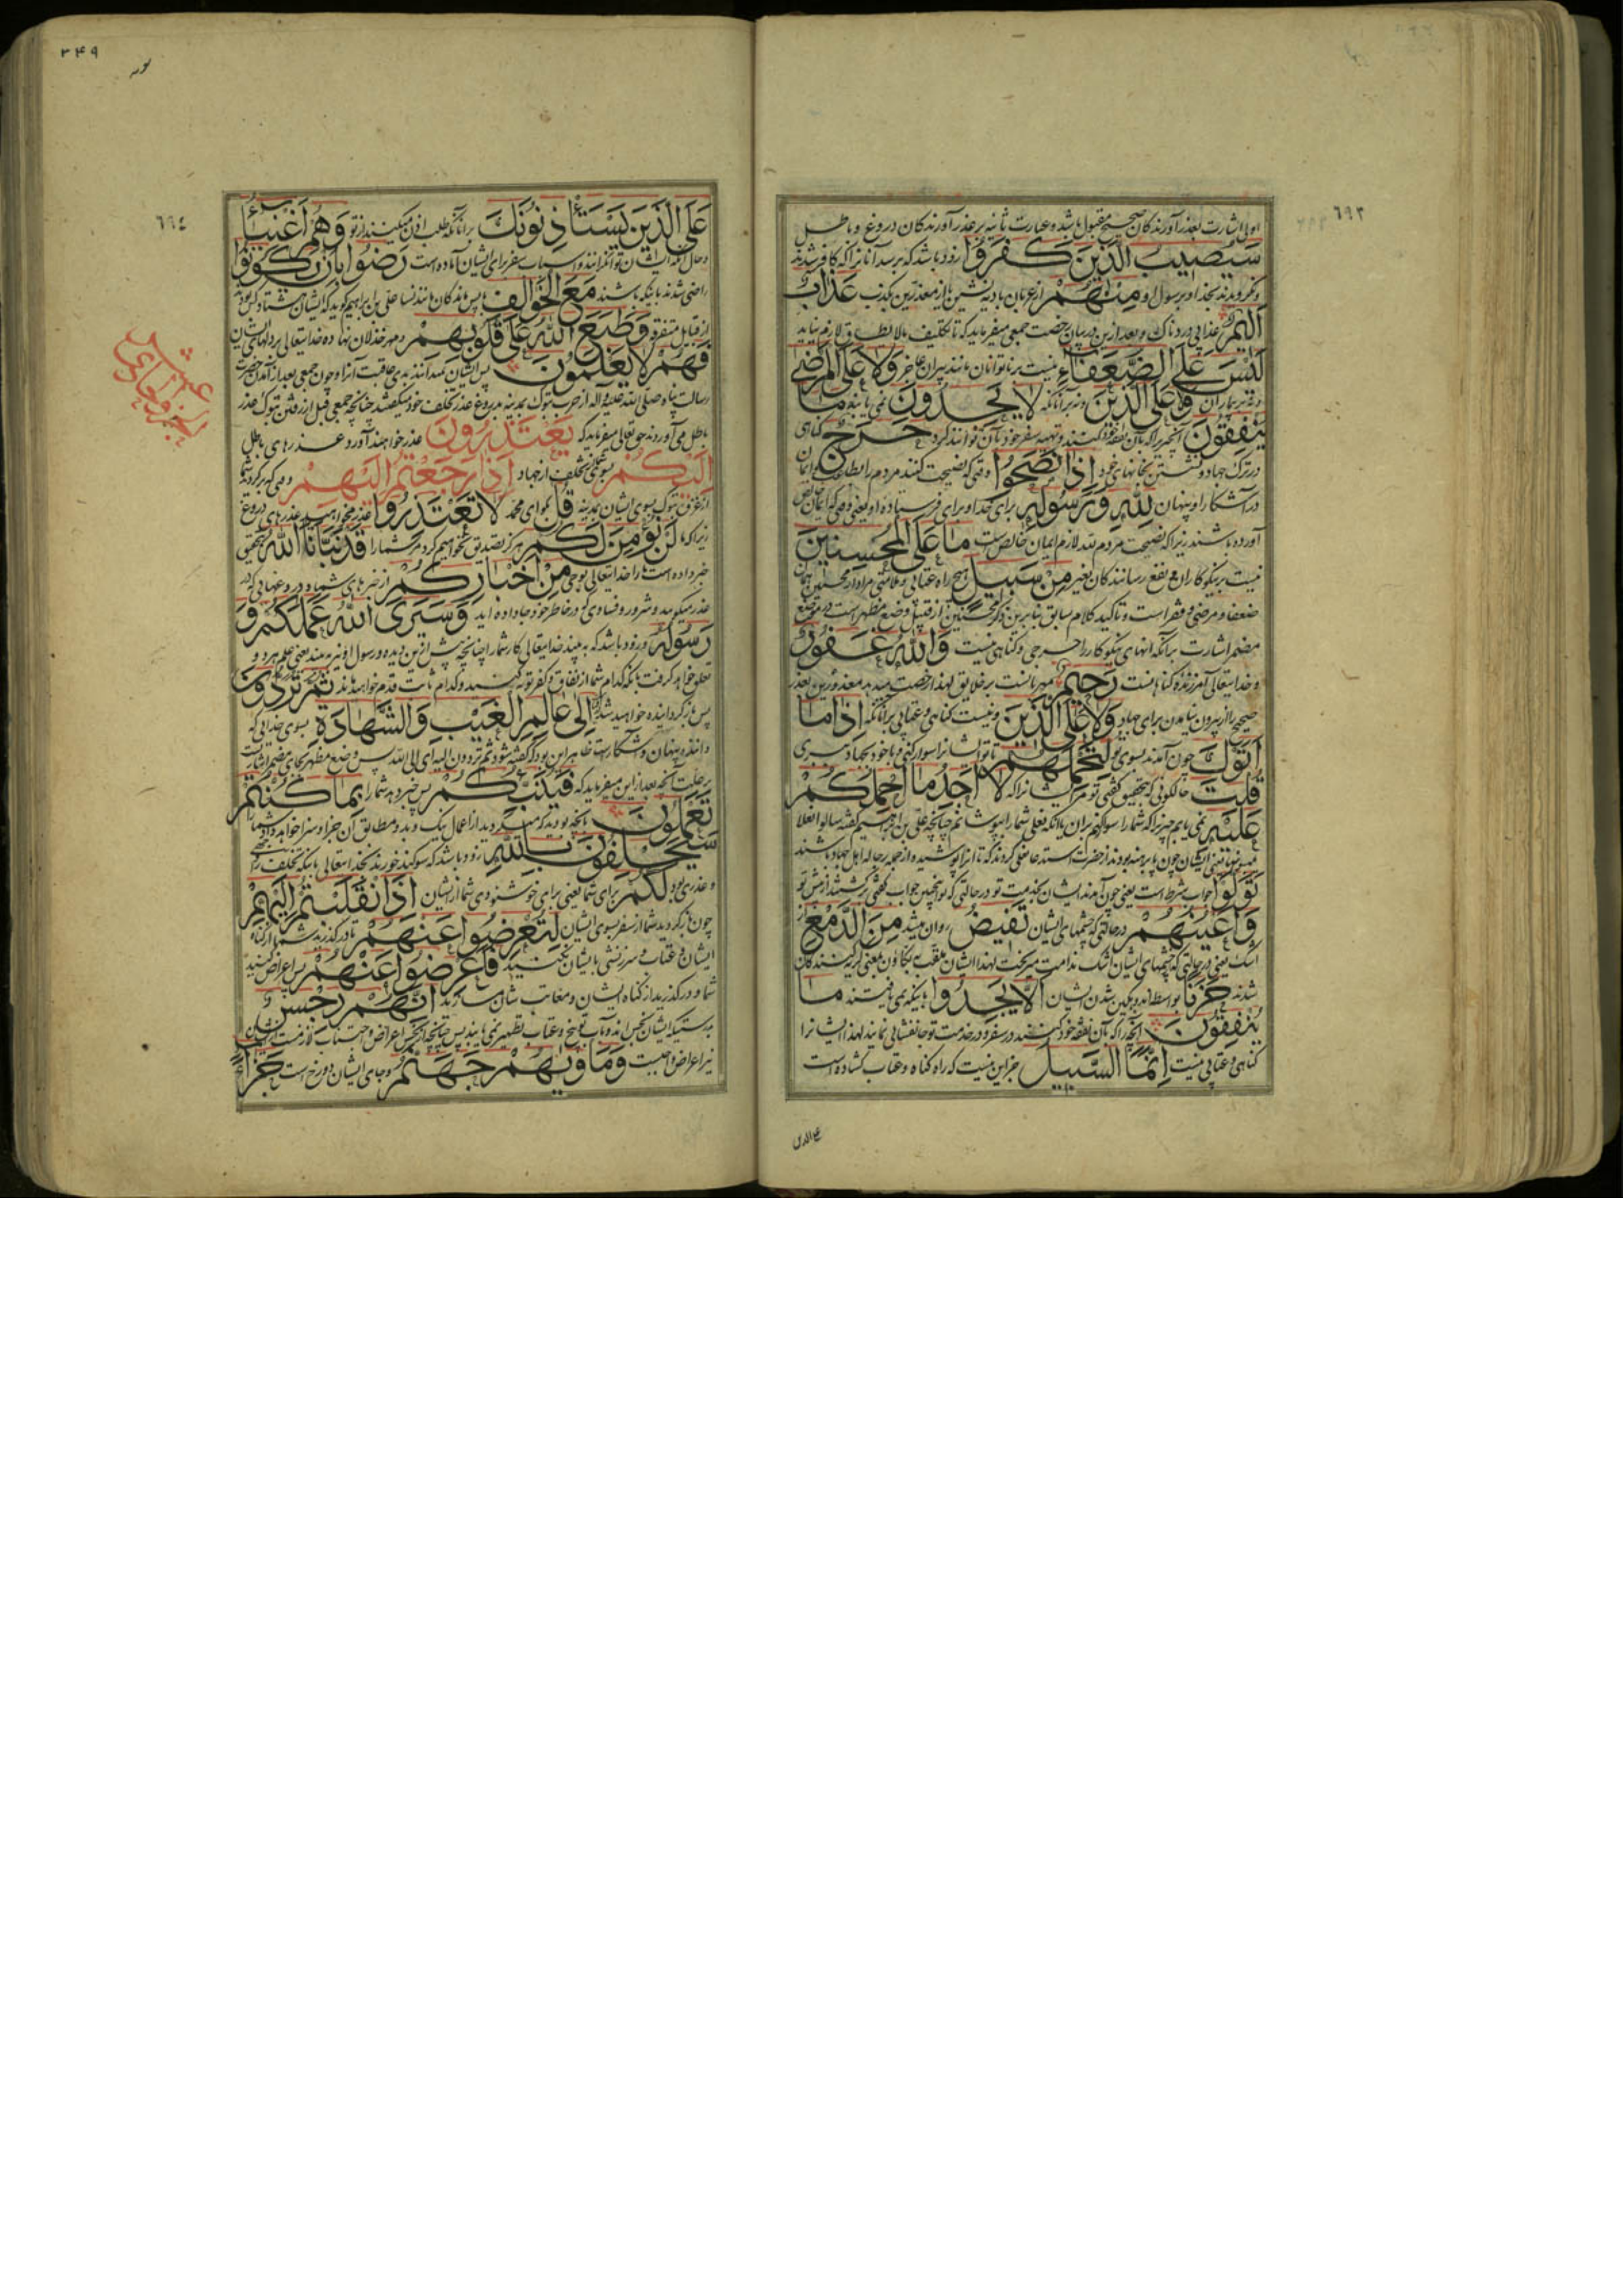 ٦٩٣
اولی اشارت بعذر آورندکان صحیح مقبول باشد و عبارت ثانیه بر عذر آورندکان دروغ و باطل
سَیُصِیبُ الَّذِینَ کَفَرُوا زود باشد که برسد آنانرا که کافر شدند
و نکرویدند بخدا و برسول او مِنْهُمْ از عربان بادیه نشین یا از معذرین بکذب عَذَابٌ
اَلِیمٌ عذابی دردناک و بعد ازین در بیان رخصت جمعی میفرماید که تا تکلیف مالایطاق لازم نیاید
لَیْسَ عَلَی الضُّعَفَاءِ نیست بر ناتوانان مانند پیران عاجز وَلَا عَلَی الْمَرْضَی
و نه بر بیماران وَلَا عَلَی الَّذِینَ و نه بر آنانکه لَا یَجِدُونَ نمی یابند مَا
یُنْفِقُونَ آنچیزیرا که بآن نفقه خود کنند و تهیه سفر خود بآن توانند کرد حَرَجٌ کناهی
در ترک جهاد و نشستن بخانهای خود اِذَا نَصَحُوا وقتی که نصیحت کنند مردم را
در آشکار و پنهان لِلّٰهِ وَ رَسُولِهِ برای خدا و برای فرستاده او یعنی وقتی که ایمان خالص
آورده باشند زیرا که نصیحت مردم لله لازم ایمان خالص است مَا عَلَی الْمُحْسِنِینَ
نیست بر نیکوکاران و نفع رسانندکان بغیر مِنْ سَبِیلٍ هیچ راه عتابی و ملامتی مراد از محسنین همان
ضعفا و مرضی و فقرا است و تاکید کلام سابق بنابرین ذکر محسنین از قبیل وضع مظهر است در موضع
مضمر اشارت بر آنکه آنهای نیکوکار را حرجی و کناهی نیست وَاللّٰهُ غَفُورٌ
و خدایتعالی آمرزنده کناهانست رَحِیمٌ مهربانست بر خلایق لهذا رخصت میدهد معذورین بعذر
صحیح را از بیرون نیامدن برای جهاد وَلَا عَلَی الَّذِینَ و نیست کناهی و عتابی بر آنانکه اِذَا مَا
اَتَوْکَ چون آمدند بسوی تو لِتَحْمِلَهُمْ تا تو ایشانرا سوار کنی و با خود بجهاد ببری
قُلْتَ حالکونی که بتحقیق کفتی تو مر ایشانرا که لَا اَجِدُ مَا اَحْمِلُکُمْ
عَلَیْهِ نمی یابم چیزیرا که شما را سوار کنم بران یا آنکه نعلی شما را بپوشانم چنانچه علی بن ابراهیم کفته سالوا نعلا
تَوَلَّوْا جواب شرط است یعنی چون آمدند ایشان بخدمت تو در حالتی که تو اینچنین جواب کفتی برکشتند از پیش تو
وَاَعْیُنُهُمْ در حالتی که چشمهای ایشان تَفِیضُ روان میشد مِنَ الدَّمْعِ از
اشک یعنی در حالتی که چشمهای ایشان اشک ندامت میریخت لهذا ایشان ملقب به بکاؤن یعنی کریه کنندکان
شدند حَزَنًا بواسطه اندوهکین شدن ایشان اَلَّا یَجِدُوا باینکه نمی یافتند مَا
یُنْفِقُونَ آنچه را که بآن نفقه خود کنند در سفر و در خدمت تو جانفشانی نمایند لهذا ایشانرا
کناهی و عتابی نیست اِنَّمَا السَّبِیلُ جز این نیست که راه کناه و عتاب کشاده است
علی الذین
٣٤٩
٦٩٤
عَلَی الَّذِینَ یَسْتَاْذِنُونَکَ بر آنانکه طلب اذن میکنند از تو وَهُمْ اَغْنِیَاءُ
و حال آنکه ایشان توانکرانند و اسباب سفر برای ایشان آماده است رَضُوا بِاَنْ یَکُونُوا
راضی شدند باینکه باشند مَعَ الْخَوَالِفِ با پس ماندکان مانند نسا علی بن ابراهیم کوید که ایشان هشتاد کس بودند
از قبایل متفرقه وَطَبَعَ اللّٰهُ عَلَی قُلُوبِهِمْ و مهر خذلان نهاده خدایتعالی بر دلهای ایشان
فَهُمْ لَا یَعْلَمُونَ پس ایشان نمیدانند بدی عاقبت آنرا و چون جمعی بعد از آمدن حضرت
رسالت پناه صلی الله علیه و آله از حرب تبوک بمدینه بدروغ عذر تخلف خود میکفتند چنانچه جمعی قبل از رفتن تبوک عذر
باطل می آوردند حق تعالی میفرماید که یَعْتَذِرُونَ عذر خواهند آورد و عذرهای باطل
اِلَیْکُمْ بسوی شما از تخلف از جهاد اِذَا رَجَعْتُمْ اِلَیْهِمْ وقتی که برکردید شما
از غزوه تبوک بسوی ایشان بمدینه قُلْ بکو ای محمد لَا تَعْتَذِرُوا عذر مخواهید بعذرهای دروغ
زیرا که ما لَنْ نُؤْمِنَ لَکُمْ هرکز تصدیق نخواهیم کرد مر شما را قَدْ نَبَّاَنَا اللّٰهُ بتحقیق
خبر داده است ما را خدایتعالی بوحی مِنْ اَخْبَارِکُمْ از خبرهای شما و دروغهایی که در
عذر میکویید و شرور و فسادی که در خاطر خود جا داده اید وَسَیَرَی اللّٰهُ عَمَلَکُمْ وَ
رَسُولُهُ و زود باشد که به بیند خدایتعالی کار شما را چنانچه پیش ازین دیده و رسول او نیز به بیند یعنی علم هر دو
تعلق خواهد کرفت باینکه کدام شما از نفاق و کفر توبه کنید و کدام ثابت قدم خواهید ماند ثُمَّ تُرَدُّونَ
پس بازکردانیده خواهید شد اِلَی عَالِمِ الْغَیْبِ وَالشَّهَادَةِ بسوی خدایی که
داننده پنهان و آشکار است ظاهر این بود که کفته شود ثم تردون الیه ای الی الله پس وضع مظهر بجای مضمر اشارتست
بر علت آنچه بعد از این میفرماید که فَیُنَبِّئُکُمْ پس خبر دهد شما را بِمَا کُنْتُمْ
تَعْمَلُونَ بآنچه بودید که میکردید از اعمال نیک و بد و مطابق آن جزا و سزا خواهد داد شما را
سَیَحْلِفُونَ بِاللّٰهِ زود باشد که سوکند خورند بخدایتعالی باینکه تخلف را
و عذری بود لَکُمْ برای شما یعنی برای خوشنودی شما از ایشان اِذَا انْقَلَبْتُمْ اِلَیْهِمْ
چون بازکردید شما از سفر بسوی ایشان لِتُعْرِضُوا عَنْهُمْ تا درکذرید شما از کناه
ایشان و عتاب و سرزنشی بایشان نکنید فَاَعْرِضُوا عَنْهُمْ پس اعراض کنید
شما و درکذرید از کناه ایشان و معاتب شان مسازید اِنَّهُمْ رِجْسٌ
بدرستیکه ایشان نجس اند و باب توبیخ و عتاب تطهیر نمی یابند پس چنانچه از نجس اعراض و اجتناب لازمست از ایشان
نیز اعراض واجبست وَمَاْوٰیهُمْ جَهَنَّمُ و جای ایشان دوزخ است جَزَاءً